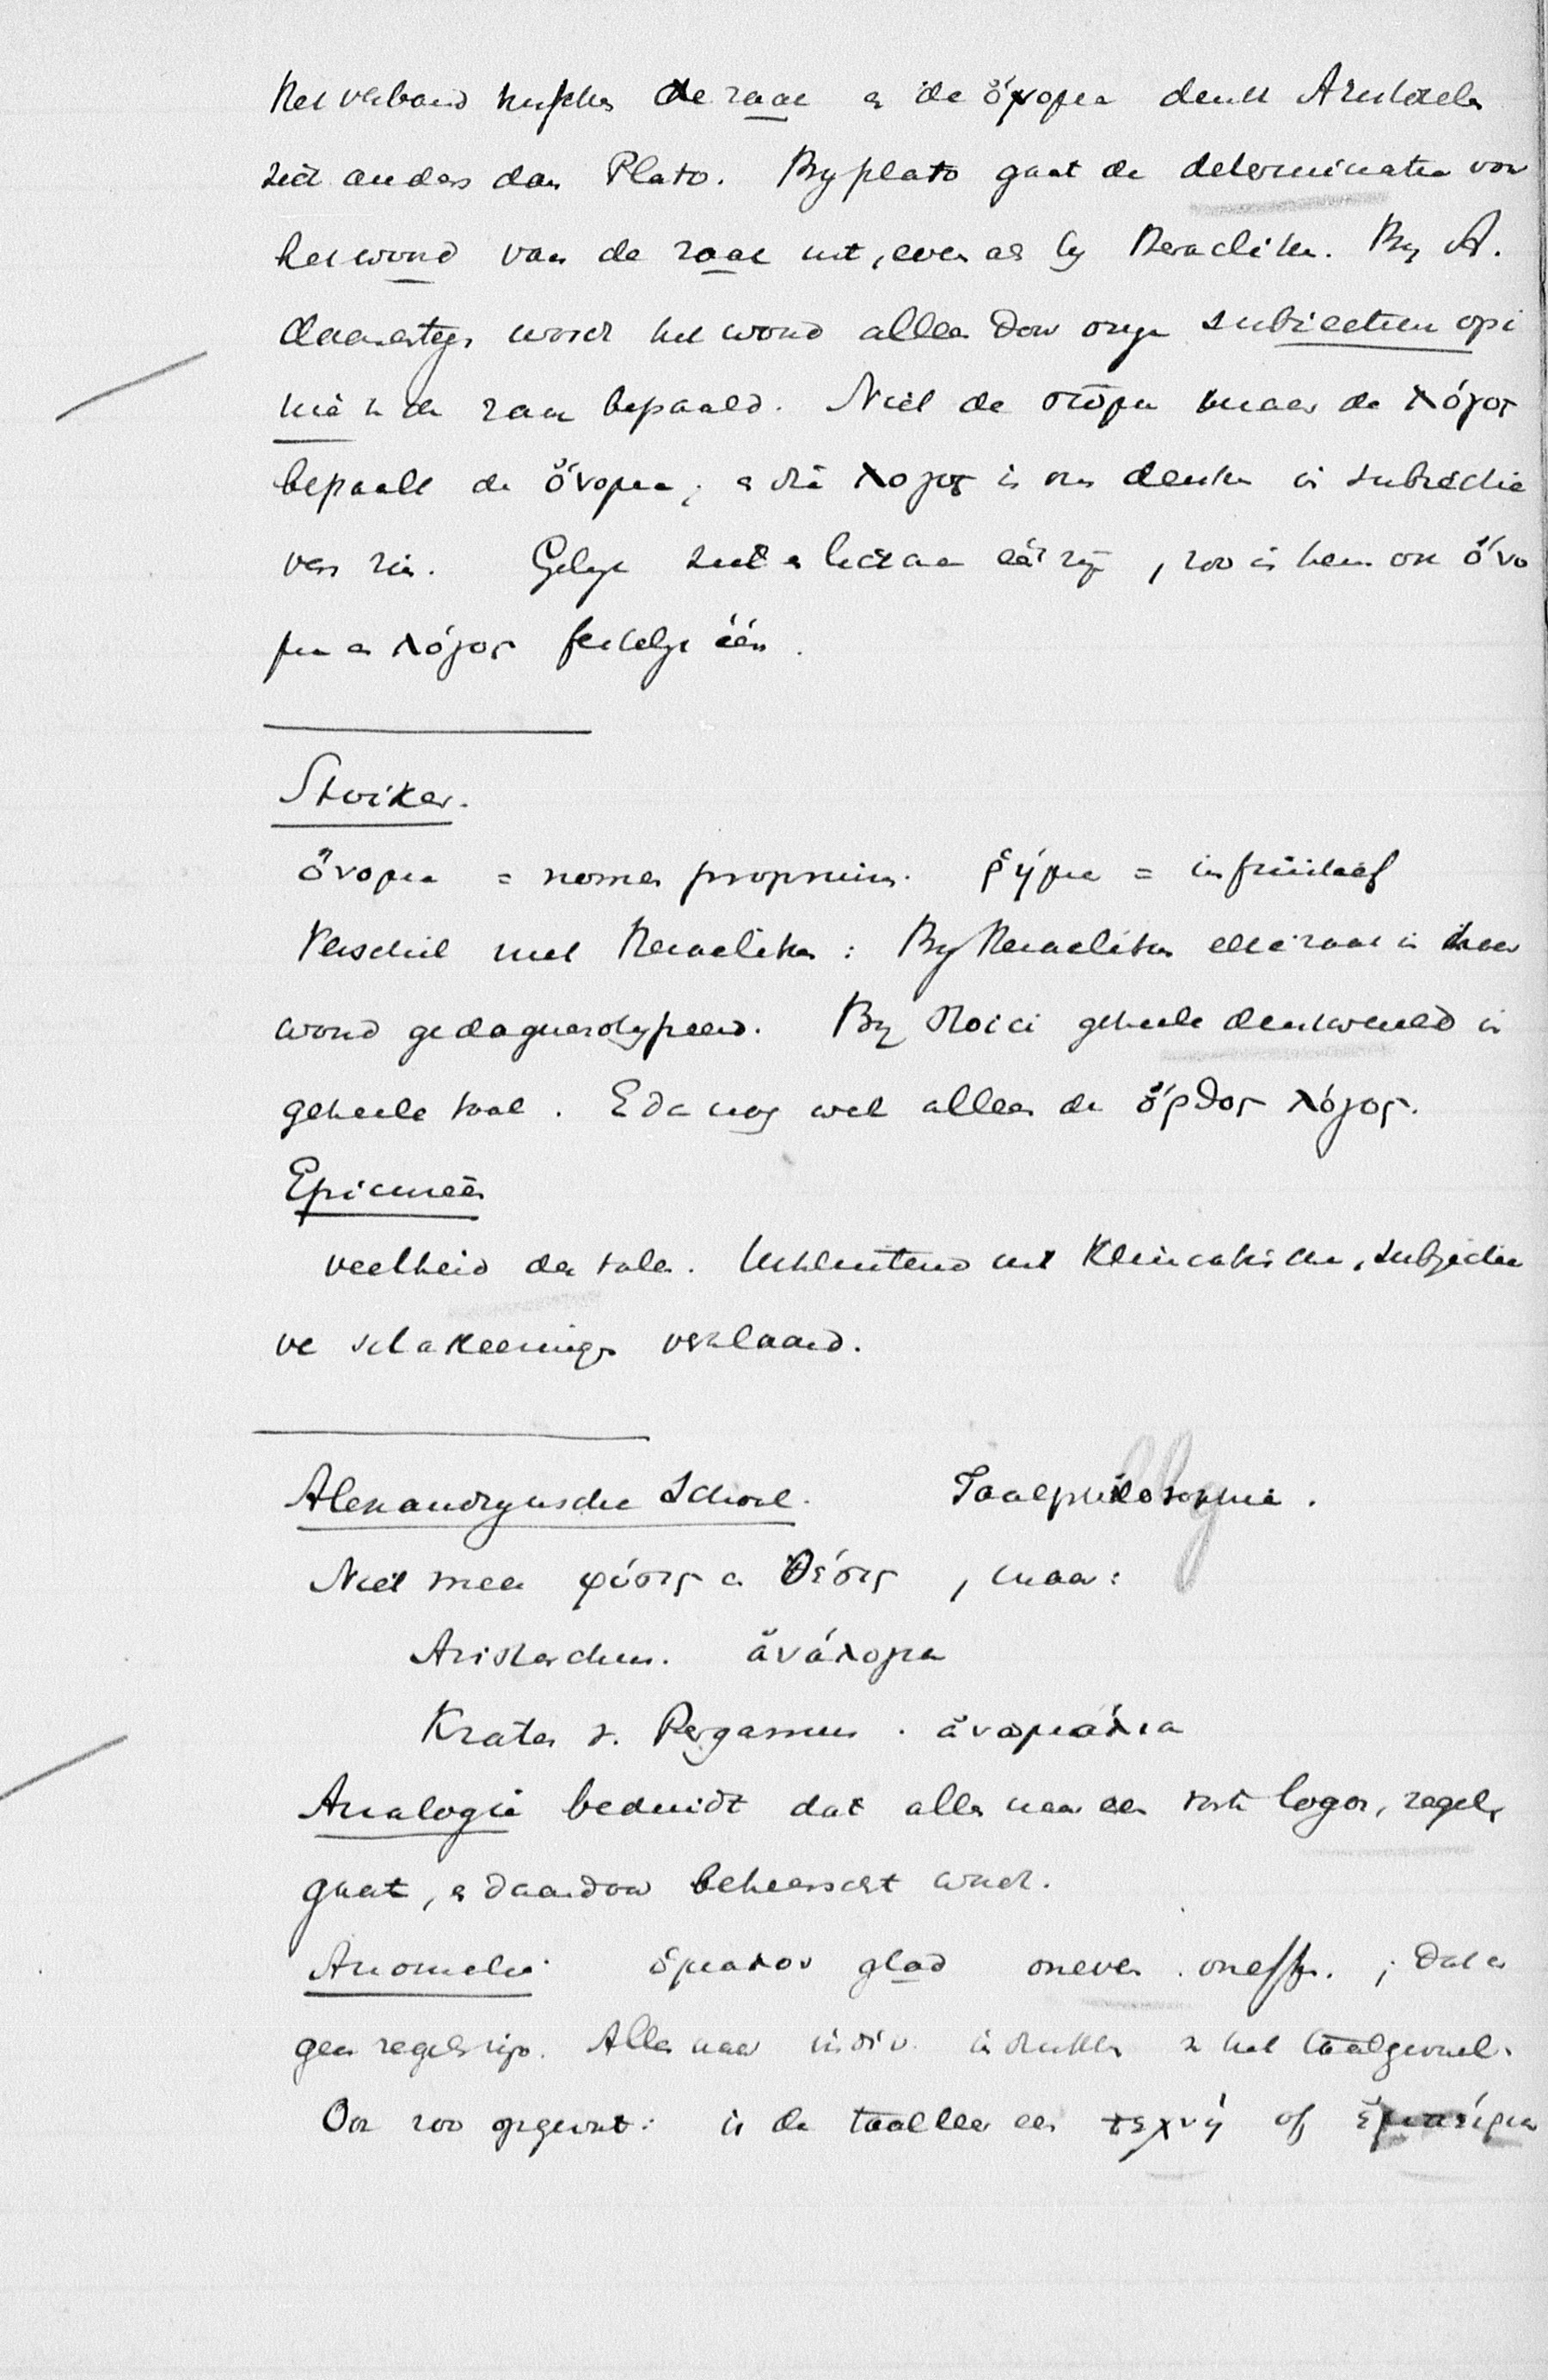 Het verband tusschen de zaak en de ὄνομα denkt Aristoteles
zich anders dan Plato. By plato gaat de determinatie van
het woord van de zaak uit, even als by Heraclitus. By A.
daarentegen wordt het woord alleen door onze subjectieve opi
nie v. de zaak bepaald. Niet de σῶμα maar de λόγος
bepaalt de ὄνομα; en die λογος is ons denken in subjectie
ven zin. Gelyk ziel en lichaam één zyn, zoo is hem ook ὄνο
μα en λόγος feitelyk één.
Stoiker.
ὄνομα = nomen proprium. ῥῆμα = infinitief
Verschil met Heraclitus: By Heraclitus elke zaak in haar
woord gedaguerotypeerd. By Stoici geheele denkwereld in
geheele taal. En dan nog wel alleen de ὄρθος λόγος.
Epicureën
veelheid der talen. Uitsluitend uit Klimatische, subjectie
ve schakeeringen verklaard.
Alexandrynsche School. Taalphilosophie.
Niet meer φύσις en θέσις, maar:
Aristarchus. ἀνάλογια
Krates v. Pergamus. ἀνωμαλια
Analogie beduidt dat alles naar een vaste logos, regel,
gaat, en daardoor beheerscht wordt.
Anomalie ὁμαλον glad oneven. oneffen.; dat er
geen regels zyn. Alles naar indiv. indrukken v. het taalgevoel.
Ook zoo opgevat: is de taalleer een τεχνή of ἐμπείρια